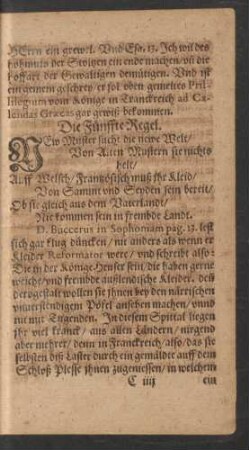 HErrn ein grewel. Vnd Esa. 13. Ich wil des
hohmuts der Stoltzen ein ende machen / vñ die
hoffart der Gewaltigen demütigen. Vnd ist
ein gemein geschrey er sol oben gemeltes Pri-
vilegium vom Könige in Franckreich ad Ca-
lendas Græcas gar gewiß bekommen.
Die Fünffte Regel.
New Muster sucht die newe Welt /
Von Alten Mustern sie nichts
helt /
Auff Welsch / Frantzösisch muß ihr Kleid /
Von Sammt vnd Seyden sein bereit /
Ob sie gleich aus dem Vaterland /
Nie kommen sein in frembde Land.
D. Buccerus in Sophoniam pag. 12. lest
sich gar klug düncken / nit anders als wenn er
Kleider Reformator were / vnd schreibt also:
Die in der Könige Heuser sein / die haben gerne
weiche / vnd frembde außlendische Kleider, den
dergestalt wollen sie ihnen bey den närrischen
vnuerstendigem Pöfel ansehen machen / vnnd
nit mit Tugenden. In diesem Spittal liegen
jhr viel kranck / aus allen Ländern / nirgend
aber mehrer / denn in Franckreich / also / das sie
selbsten diß Laster durch ein gemäldte auff dem
Schloß Plesse ihnen zugeniessen / in welchem
C iiij ein